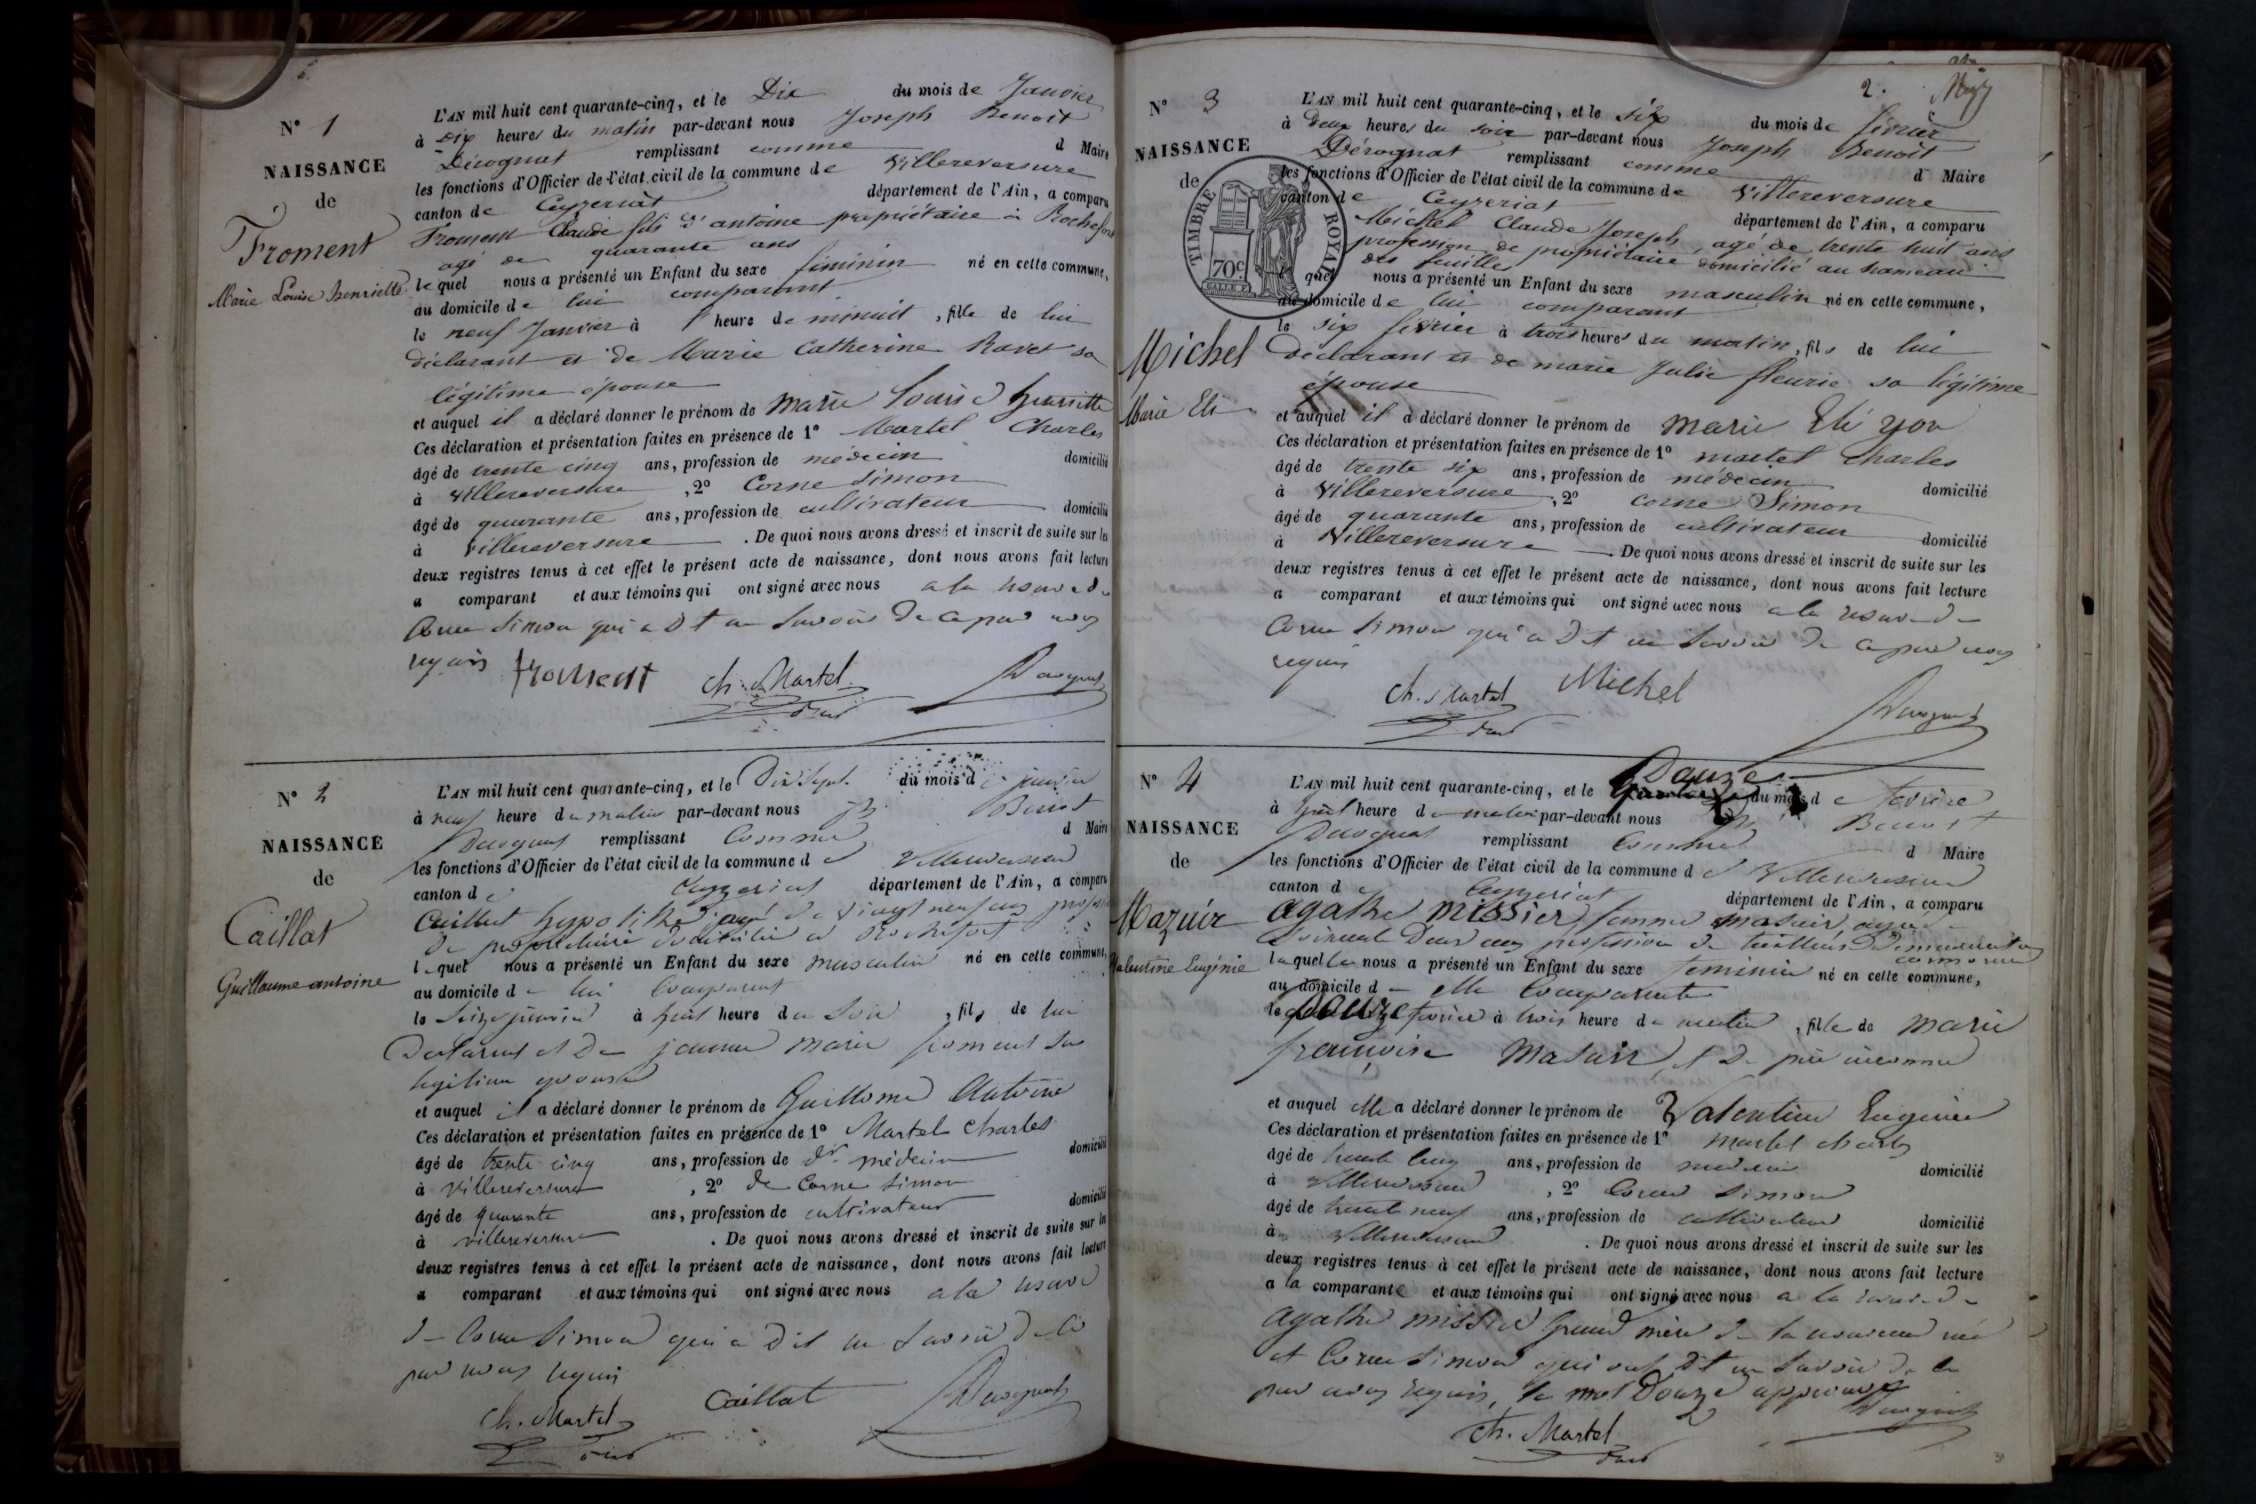 N° 1
NAISSANCE
de
Froment
Marie Louise henriette
L'AN mil huit cent quarante-cinq, et le Dix du mois de Janvier
à Dix heures du matin par-devant nous Joseph Benoit
Dérognat remplissant comme d Maire
les fonctions d'Officier de l'état civil de la commune de Villereversure
canton de Ceyzeriat département de l'Ain, a comparu
Froment Claude fils d'antoine propriétaire à Rochefort
agé de quarante ans
lequel nous a présenté un Enfant du sexe féminin né en cette commune,
au domicile de lui comparant
le neuf Janvier à heure de minuit, fille de lui
déclarant et de Marie Catherine Ravet sa
légitime épouse
et auquel il a déclaré donner le prénom de marie Louise henriette
Ces déclaration et présentation faites en présence de 1° Martel Charles
âgé de trente cinq ans, profession de médecin domicilié
à Villereversure, 2° Corne Simon
âgé de quarante ans, profession de cultivateur domicilié
à Villereversure. De quoi nous avons dressé et inscrit de suite sur les
deux registres tenus à cet effet le présent acte de naissance, dont nous avons fait lecture
a comparant et aux témoins qui ont signé avec nous a la
Corne Simon qui a Dit ne Savoir De ce par nous
requis froment ch. Martel Dérognat
N° 2
NAISSANCE
de
Caillat
Guillaume antoine
L'AN mil huit cent quarante-cinq, et le Dix Sept du mois de janvier
à neuf heure du matin par-devant nous Benoit
Dérognat remplissant Comme d Maire
les fonctions d'Officier de l'état civil de la commune de Villereversure
canton de Ceyzeriat département de l'Ain, a comparu
Caillat hypolithe agé de vingt neuf ans
de propriétaire domicilié a Rochefort
lequel nous a présenté un Enfant du sexe masculin né en cette commune,
au domicile de lui Comparant
le Seize janvier à huit heure du Soir, fils de lui
Declarant et De jeanne marie froment sa
legitime epouse
et auquel il a déclaré donner le prénom de Guillome Antoine
Ces déclaration et présentation faites en présence de 1° Martel Charles
âgé de trente cinq ans, profession de dr médecin domicilié
à Villereversure, 2° de Corne Simon
âgé de quarante ans, profession de cultivateur domicilié
à villereversure. De quoi nous avons dressé et inscrit de suite sur les
deux registres tenus à cet effet le présent acte de naissance, dont nous avons fait lecture
a comparant et aux témoins qui ont signé avec nous a la
de Corne Simon qui a Dit ne Savoir De ce
par nous requis
Ch. Martel Caillat Dérognat
2.
N° 3
NAISSANCE
de
TIMBRE ROYAL
70c
Michel
Marie Eli
L'AN mil huit cent quarante-cinq, et le six du mois de février
à deux heures du soir par-devant nous Joseph Benoit
Dérognat remplissant comme d Maire
les fonctions d'Officier de l'état civil de la commune de Villereversure
canton de Ceyzeriat département de l'Ain, a comparu
Michel Claude Joseph, agé de trente huit ans
profession de propriétaire domicilié au hameau
des feuilles
quel nous a présenté un Enfant du sexe masculin né en cette commune,
au domicile de lui comparant
le six février à trois heures du matin, fils de lui
déclarant et de marie Julie fleurie sa légitime
épouse
et auquel il a déclaré donner le prénom de marie Eli yon
Ces déclaration et présentation faites en présence de 1° martel Charles
âgé de trente six ans, profession de médecin domicilié
à Villereversure, 2° Corne Simon
âgé de quarante ans, profession de cultivateur domicilié
à Villereversure. De quoi nous avons dressé et inscrit de suite sur les
deux registres tenus à cet effet le présent acte de naissance, dont nous avons fait lecture
a comparant et aux témoins qui ont signé avec nous a la
Corne Simon qui a Dit ne Savoir De ce par nous
requis
ch. Martel Michel Dérognat
N° 4
NAISSANCE
de
Mazuir
Valentine Eugénie
L'AN mil huit cent quarante-cinq, et le Douze du mois de fevrier
à huit heure du matin par-devant nous Benoit
Dérognat remplissant Comme d Maire
les fonctions d'Officier de l'état civil de la commune de Villereversure
canton de Ceyzeriat département de l'Ain, a comparu
agathe missier femme masuir, agée
profession de tailleuse
laquelle nous a présenté un Enfant du sexe feminin né en cette commune,
au domicile de elle Comparante
le Douze fevrier à trois heure du matin, fille de marie
françoise masuir et De père inconnu
et auquel elle a déclaré donner le prénom de Valentine Eugenie
Ces déclaration et présentation faites en présence de 1° martel charles
âgé de trente cinq ans, profession de medecin domicilié
à Villereversure, 2° Corne Simon
âgé de trente neuf ans, profession de cultivateur domicilié
à Villereversure. De quoi nous avons dressé et inscrit de suite sur les
deux registres tenus à cet effet le présent acte de naissance, dont nous avons fait lecture
a la comparante et aux témoins qui ont signé avec nous a la
agathe missier Grand mère de la nouveau née
et Corne Simon qui ont Dit ne Savoir De ce
par nous requis, le mot Douze approuvé
Ch. Martel Dérognat